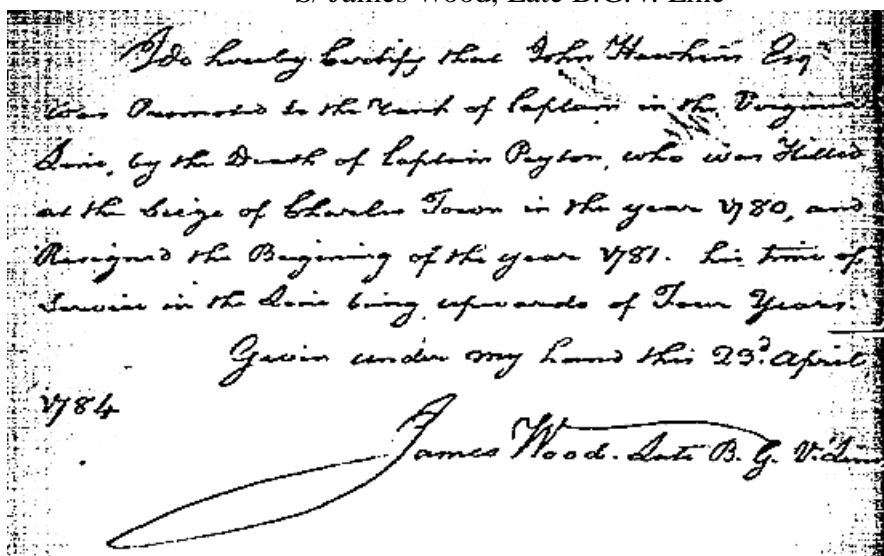 S/ James Wood, Late B.G.V. Line
I do hereby Certify that John Hawkins Esqr
was Promoted to the Rank of Captain in the Virginia
Line, by the Death of Captain Peyton, who was Killed
at the Seige of Charles Town in the year 1780, and
Resigned the Begining of the year 1781. his time of
Service in the Line being upwards of Four Years.
Given under my hand this 23d. April
1784
James Wood. Late B. G. V. Line